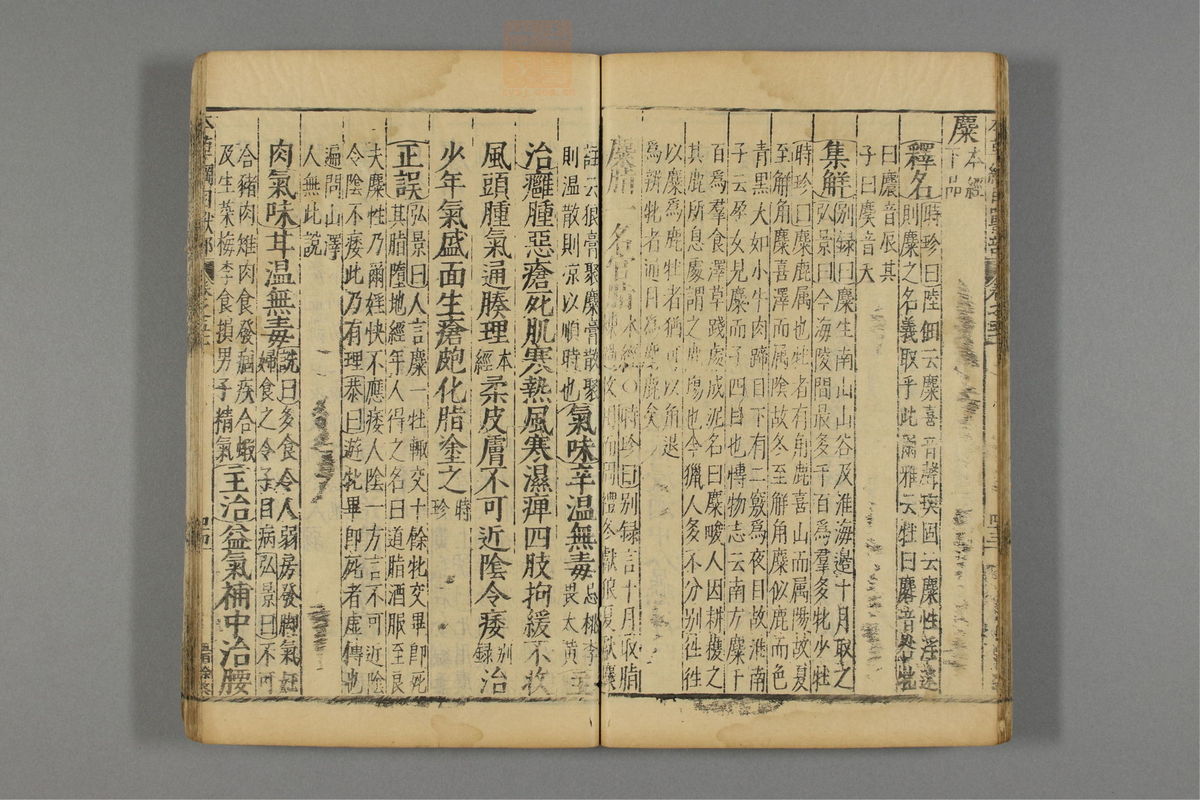 麋本經下品
釋名時珍曰陸佃云麋喜音聲班固云麋性淫迷
則麋之名義取乎此爾雅云牡曰麔音咎牝
曰麎音辰其
子曰䴠音夭
集解別録曰麋生南山山谷及淮海邊十月取之
弘景曰今海陵間最多千百爲羣多牝少牡
時珍曰麋鹿属也牡者有角鹿喜山而属陽故夏
至解角麋喜澤而属陰故冬至解角麋似鹿而色
青黑大如小牛肉蹄目下有二竅爲夜目故淮南
子云孕女見麋而子四目也博物志云南方麋千
百爲羣食澤草踐處成泥名曰麋畯人因耕穫之
其鹿所息處謂之鹿塲也今獵人多不分別徃徃
以麋爲鹿牡者猶可以角退
爲辨牝者通目爲麀鹿矣
麋脂一名宮脂本經○時珍曰別録言十月取脂
冬獻狼夏獻麋
註云狼膏聚麋膏散聚
則温散則凉以順時也氣味辛温無毒忌桃李
畏大黄主
治癰腫惡瘡死肌寒熱風寒濕痺四肢拘緩不收
風頭腫氣通腠理本經柔皮膚不可近陰令痿別録治
少年氣盛面生瘡皰化脂塗之時珍
正誤弘景曰人言麋一牡輙交十餘牝交畢即死
其脂墮地經年人得之名曰道脂酒服至良
夫麋性乃爾婬快不應痿人陰一方言不可近陰
令陰不痿此乃有理㳟曰遊牝畢即死者虛傳也
遍問山澤
人無此說
肉氣味甘温無毒詵曰多食令人弱房發脚氣妊
婦食之令子目病弘景曰不可
合猪肉雉肉食發痼疾合蝦
及生菜梅李食損男子精氣主治益氣補中治腰